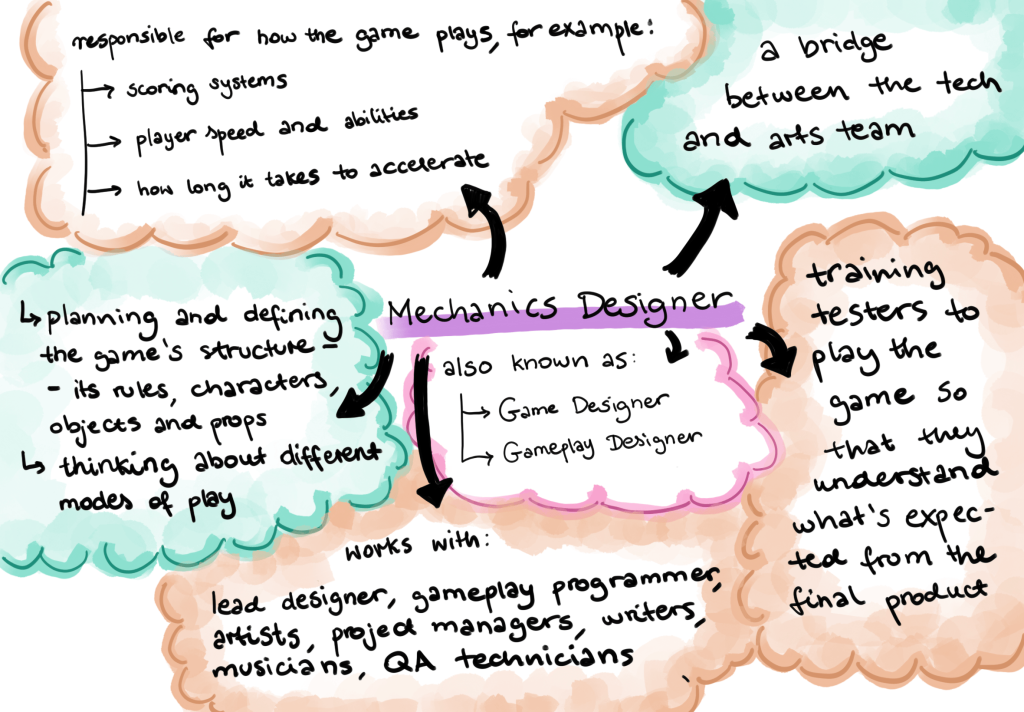 responsible for how the game plays, for example:
→ scoring systems
→ player speed and abilities
→ how long it takes to accelerate
a bridge
between the tech
and arts team
Mechanics Designer
also known as:
→ Game Designer
→ Gameplay Designer
↳ planning and defining
the game's structure –
– its rules, characters,
objects and props
↳ thinking about different
modes of play
training
testers to
play the
game so
that they
understand
what's expec-
ted from the
final product
works with:
lead designer, gameplay programmer,
artists, project managers, writers,
musicians, QA technicians